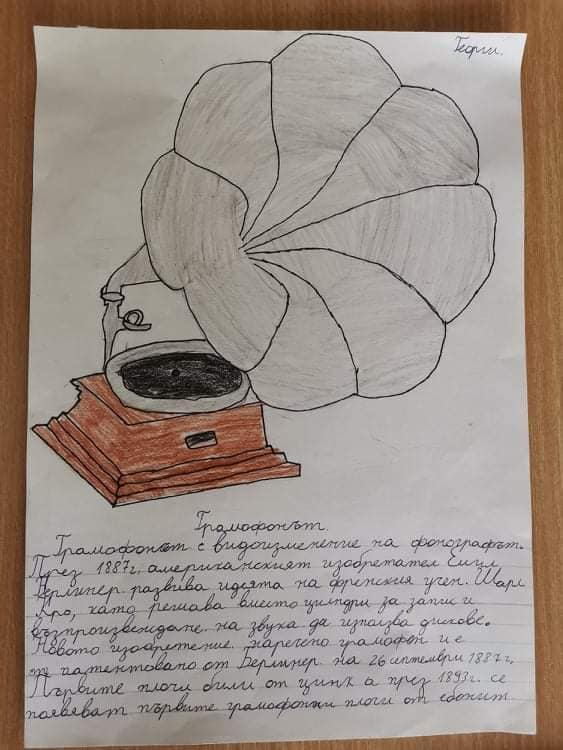 Георги.
Грамофонът.
Грамофонът с видоизменение на фонографът.
През 1887г. американският изобретател Емил
Берлинер развива идеята на френския учен. Шарл
Кро, като решава вместо цилндри за запис и
възпроизвеждане на звука да изпозва дискове.
Новото изобретение наречено грамофон и е
патентовано от Берлинер на 26 септември 1887г.
Първите плочи били от цинк а през 1893г. се
появяват първите грамофонни плочи от ебонит